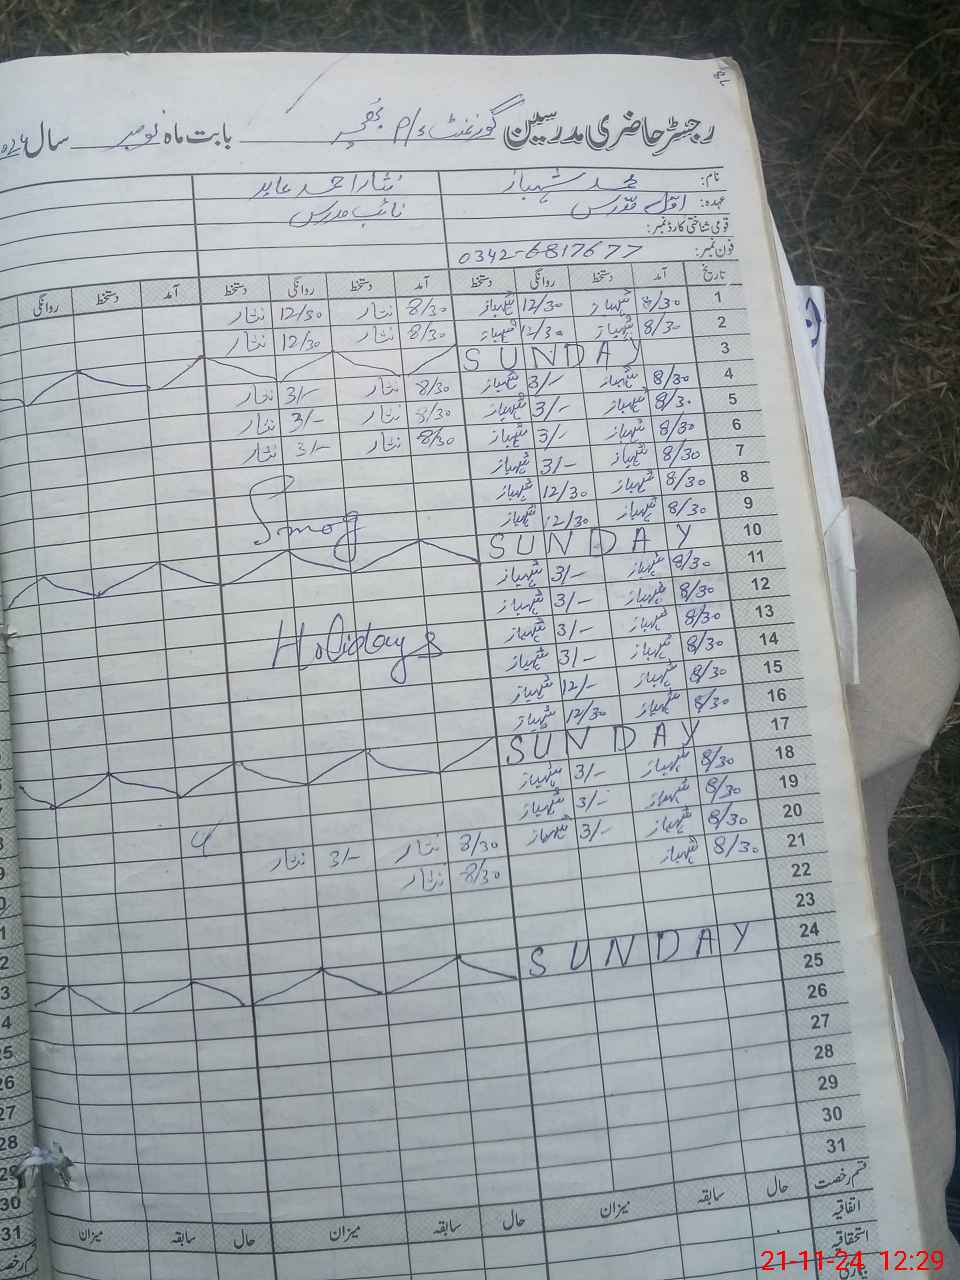 رجسٹر حاضری مدرسین گورنمنٹ بابت ماہ نومبر سال
نام: محمد شہباز نثار احمد عابد
عہدہ: اول مدرس نائب مدرس
قومی شناختی کارڈ نمبر:
فون نمبر: 0342-6817677
تاریخ آمد دستخط روانگی دستخط آمد دستخط روانگی دستخط آمد دستخط روانگی
1 8/30 شہباز 12/30 شہباز 8/30 نثار 12/30 نثار
2 8/30 شہباز 12/30 شہباز 8/30 نثار 12/30 نثار
3 SUNDAY
4 8/30 شہباز 3/- شہباز 8/30 نثار 3/- نثار
5 8/30 شہباز 3/- شہباز 8/30 نثار 3/- نثار
6 8/30 شہباز 3/- شہباز 8/30 نثار 3/- نثار
7 8/30 شہباز 3/- شہباز
8 8/30 شہباز 12/30 شہباز
Smog
9 8/30 شہباز 12/30 شہباز
10 SUNDAY
11 8/30 شہباز 3/- شہباز
12 8/30 شہباز 3/- شہباز
13 8/30 شہباز 3/- شہباز
Holidays
14 8/30 شہباز 3/- شہباز
15 8/30 شہباز 12/- شہباز
16 8/30 شہباز 12/30 شہباز
17 SUNDAY
18 8/30 شہباز 3/- شہباز
19 8/30 شہباز 3/- شہباز
20 8/30 شہباز 3/- شہباز 8/30 نثار 3/- نثار
21 8/30 شہباز 8/30 نثار
22
23
24 SUNDAY
25
26
27
28
29
30
31
قسم رخصت حال سابقہ میزان حال سابقہ میزان حال سابقہ میزان
اتفاقیہ
استحقاقیہ
21-11-24 12:29